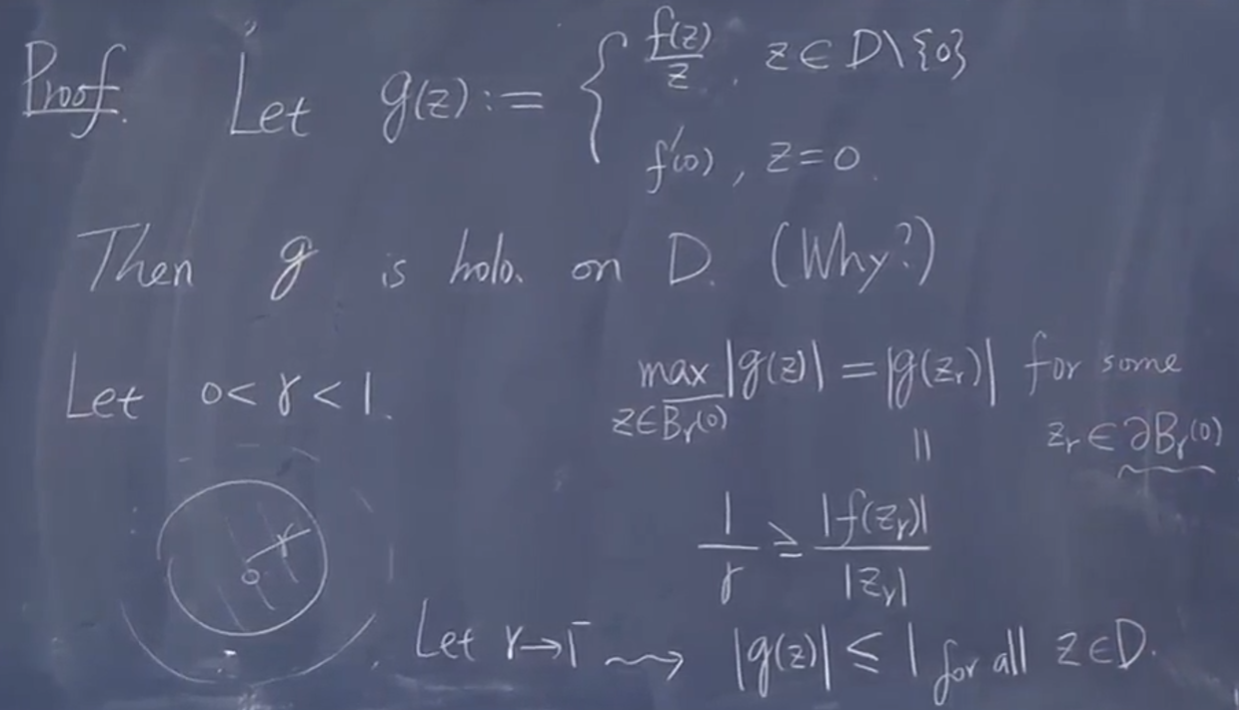 Proof. Let g(z) := { f(z)/z, z ∈ D\{0}
f'(0), z=0.
Then g is holo. on D. (Why?)
Let 0<r<1.
max |g(z)| = |g(z_r)| for some
z∈\overline{B_r(0)} z_r ∈ ∂B_r(0)
||
1/r ≥ |f(z_r)|/|z_r|
r
0
Let r→1⁻ ⇝ |g(z)| ≤ 1 for all z∈D.